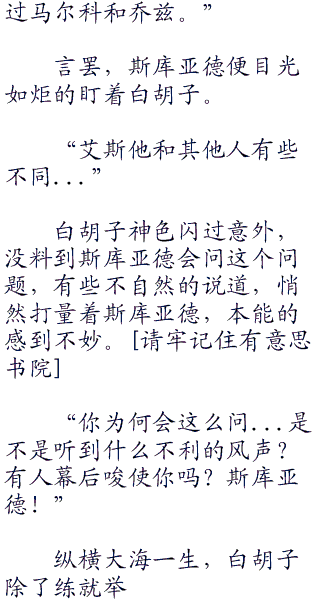 过马尔科和乔兹。”
言罢，斯库亚德便目光
如炬的盯着白胡子。
“艾斯他和其他人有些
不同...”
白胡子神色闪过意外，
没料到斯库亚德会问这个问
题，有些不自然的说道，悄
然打量着斯库亚德，本能的
感到不妙。[请牢记住有意思
书院]
“你为何会这么问...是
不是听到什么不利的风声？
有人幕后唆使你吗？斯库亚
德！”
纵横大海一生，白胡子
除了练就举